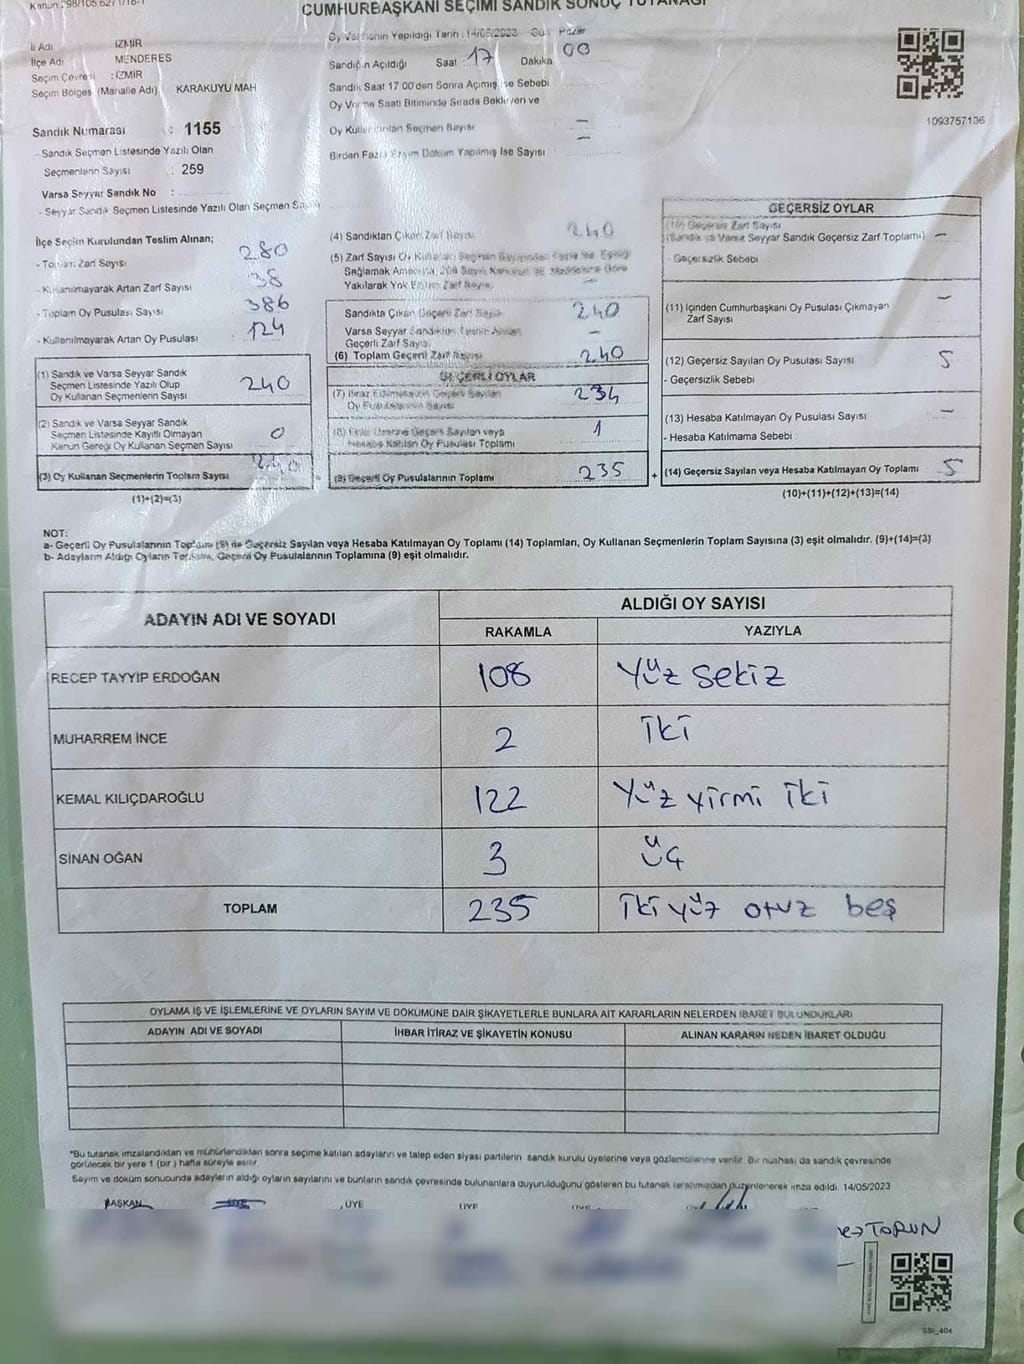 CUMHURBAŞKANI SEÇİMİ SANDIK SONUÇ TUTANAĞI
İl Adı İZMİR
İlçe Adı MENDERES
Seçim Çevresi : İZMİR
Seçim Bölgesi (Mahalle Adı) KARAKUYU MAH
Sandık Numarası : 1155
- Sandık Seçmen Listesinde Yazılı Olan
Seçmenlerin Sayısı : 259
Varsa Seyyar Sandık No :
- Seyyar Sandık Seçmen Listesinde Yazılı Olan Seçmen
Oy Vermenin Yapıldığı Tarih : 14/05/2023 Gün Pazar
Sandığın Açıldığı Saat : 17 Dakika 00
Sandık Saat 17:00'den Sonra Açılmış İse Sebebi
Oy Verme Saati Bitiminde Sırada Bekleyen ve
Oy Kullandırılan Seçmen Sayısı –
Birden Fazla Döküm Yapılmış İse Sayısı –
1093757136
İlçe Seçim Kurulundan Teslim Alınan;
- Toplam Zarf Sayısı 280
- Kullanılmayarak Artan Zarf Sayısı 38
- Toplam Oy Pusulası Sayısı 386
- Kullanılmayarak Artan Oy Pusulası 124
(1) Sandık ve Varsa Seyyar Sandık
Seçmen Listesinde Yazılı Olup
Oy Kullanan Seçmenlerin Sayısı 240
(2) Sandık ve Varsa Seyyar Sandık
Seçmen Listesinde Kayıtlı Olmayan
Kanun Gereği Oy Kullanan Seçmen Sayısı 0
(3) Oy Kullanan Seçmenlerin Toplam Sayısı 240
(1)+(2)=(3)
(4) Sandıktan Çıkan Zarf Sayısı 240
(5) Zarf Sayısı
Sağlamak
Yakılarak Yok Edilen Zarf Sayısı –
Sandıkta Çıkan Geçerli Zarf Sayısı 240
Varsa Seyyar Sandıktan Çıkan
Geçerli Zarf Sayısı –
(6) Toplam Geçerli Zarf Sayısı 240
GEÇERLİ OYLAR
(7) İtiraz Edilmeksizin Geçerli Sayılan
Oy Pusulalarının Sayısı 234
(8) İtiraz Üzerine Geçerli Sayılan veya
Hesaba Katılan Oy Pusulası Toplamı 1
(9) Geçerli Oy Pusulalarının Toplamı 235 +
GEÇERSİZ OYLAR
(10) Geçersiz Zarf Sayısı
(Sandık ve Varsa Seyyar Sandık Geçersiz Zarf Toplamı) –
- Geçersizlik Sebebi
(11) İçinden Cumhurbaşkanı Oy Pusulası Çıkmayan
Zarf Sayısı –
(12) Geçersiz Sayılan Oy Pusulası Sayısı 5
- Geçersizlik Sebebi
(13) Hesaba Katılmayan Oy Pusulası Sayısı –
- Hesaba Katılmama Sebebi :
(14) Geçersiz Sayılan veya Hesaba Katılmayan Oy Toplamı 5
(10)+(11)+(12)+(13)=(14)
NOT:
a- Geçerli Oy Pusulalarının Toplamı (9) ile Geçersiz Sayılan veya Hesaba Katılmayan Oy Toplamı (14) Toplamları, Oy Kullanan Seçmenlerin Toplam Sayısına (3) eşit olmalıdır. (9)+(14)=(3)
b- Adayların Aldığı Oyların Toplamı, Geçerli Oy Pusulalarının Toplamına (9) eşit olmalıdır.
ADAYIN ADI VE SOYADI
ALDIĞI OY SAYISI
RAKAMLA YAZIYLA
RECEP TAYYİP ERDOĞAN 108 Yüz Sekiz
MUHARREM İNCE 2 İki
KEMAL KILIÇDAROĞLU 122 Yüz yirmi iki
SİNAN OĞAN 3 Üç
TOPLAM 235 İki yüz otuz beş
OYLAMA İŞ VE İŞLEMLERİNE VE OYLARIN SAYIM VE DÖKÜMÜNE DAİR ŞİKAYETLERLE BUNLARA AİT KARARLARIN NELERDEN İBARET BULUNDUKLARI
ADAYIN ADI VE SOYADI İHBAR İTİRAZ VE ŞİKAYETİN KONUSU ALINAN KARARIN NEDEN İBARET OLDUĞU
*Bu tutanak imzalandıktan ve mühürlendikten sonra seçime katılan adayların ve talep eden siyasi partilerin sandık kurulu üyelerine veya gözlemcilerine verilir. Bir nüshası da sandık çevresinde
görülecek bir yere 1 (bir) hafta süreyle asılır
Sayım ve döküm sonucunda adayların aldığı oyların sayılarını ve bunların sandık çevresinde bulunanlara duyurulduğunu gösteren bu tutanak tarafımızdan düzenlenerek imza edildi. 14/05/2023
BAŞKAN ÜYE ÜYE
TORUN
SSİ_404